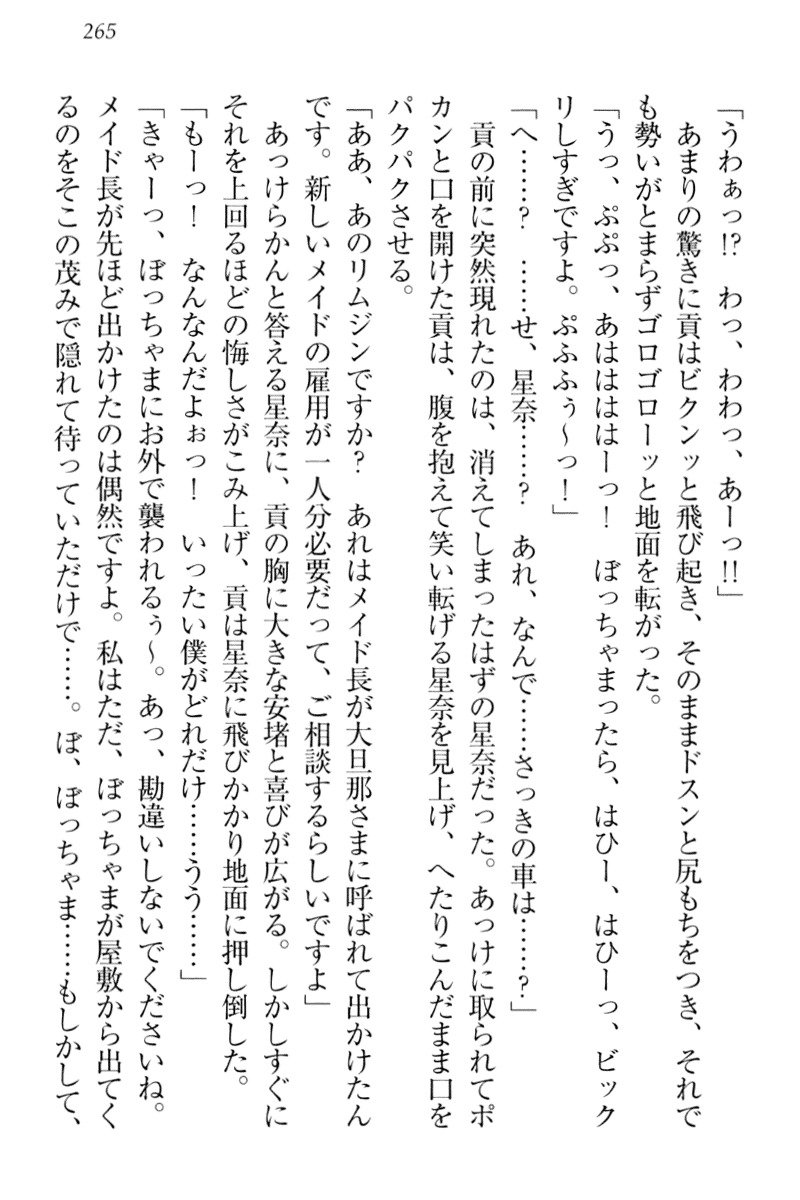 265
「うわぁっ!?　わっ、わわっ、あーっ!!」
　あまりの驚きに貢はビクンッと飛び起き、そのままドスンと尻もちをつき、それで
も勢いがとまらずゴロゴローッと地面を転がった。
「うっ、ぷぷっ、あはははーっ！　ぼっちゃまったら、はひー、はひーっ、ビック
リしすぎですよ。ぷふふぅ～っ！」
「へ……？　……せ、星奈……？　あれ、なんで……さっきの車は……？」
　貢の前に突然現れたのは、消えてしまったはずの星奈だった。あっけに取られてポ
カンと口を開けた貢は、腹を抱えて笑い転げる星奈を見上げ、へたりこんだまま口を
パクパクさせる。
「ああ、あのリムジンですか？　あれはメイド長が大旦那さまに呼ばれて出かけたん
です。新しいメイドの雇用が一人分必要だって、ご相談するらしいですよ」
　あっけらかんと答える星奈に、貢の胸に大きな安堵と喜びが広がる。しかしすぐに
それを上回るほどの悔しさがこみ上げ、貢は星奈に飛びかかり地面に押し倒した。
「もーっ！　なんなんだよぉっ！　いったい僕がどれだけ……うう……」
「きゃーっ、ぼっちゃまにお外で襲われるぅ～。あっ、勘違いしないでくださいね。
メイド長が先ほど出かけたのは偶然ですよ。私はただ、ぼっちゃまが屋敷から出てく
るのをそこの茂みで隠れて待っていただけで……。ぼ、ぼっちゃま……もしかして、